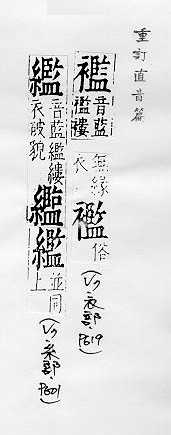 重訂直音篇
襤音藍襤褸無緣衣 俗(V7·衣部·P619)
繿音藍繿縷衣破貌 並同上(V7·糸部·P601)